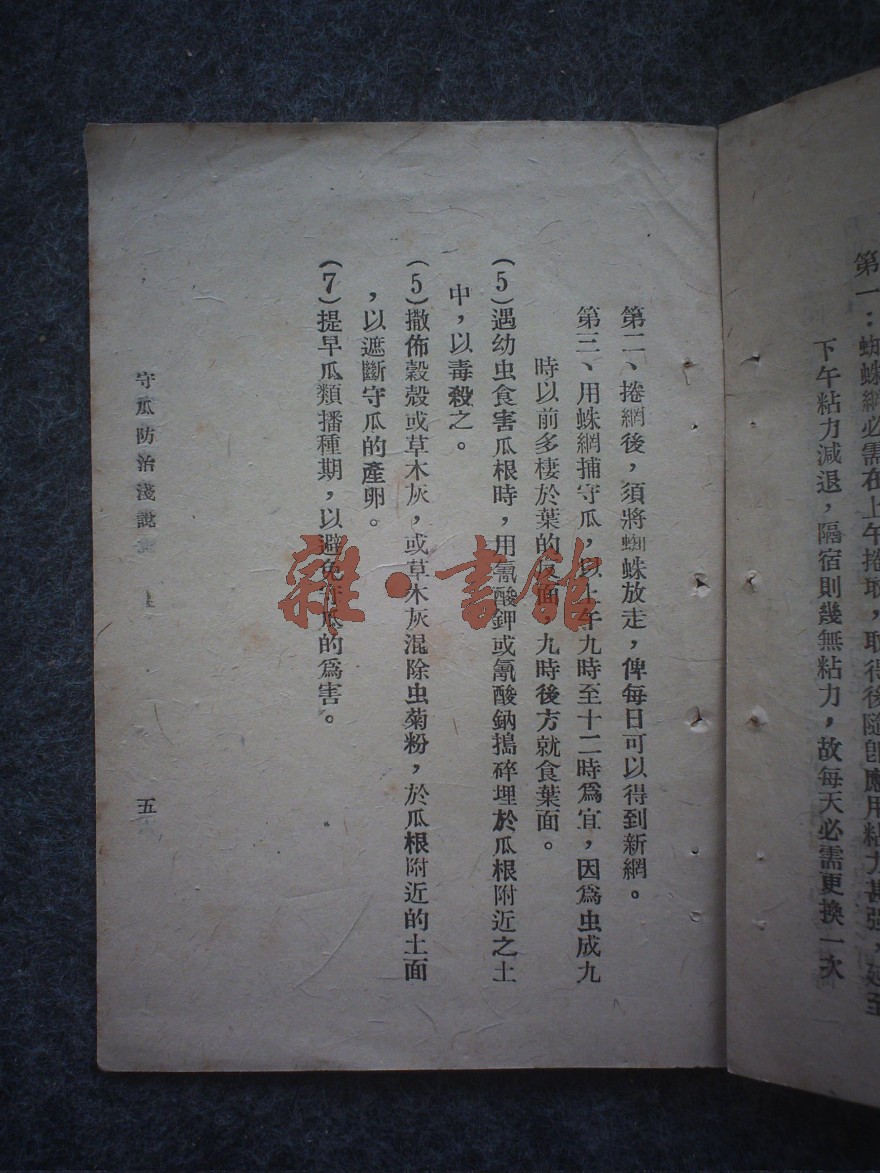 第一：蜘蛛網必需在上午捲取，取得後隨卽應用粘力甚强，延至
下午粘力減退，隔宿則幾無粘力，故每天必需更換一次
第二、捲網後，須將蜘蛛放走，俾每日可以得到新網。
第三、用蛛網捕守瓜，以上午九時至十二時爲宜，因爲虫成九
時以前多棲於葉的反面，九時後方就食葉面。
(5)遇幼虫食害瓜根時，用氰酸鉀或氰酸鈉搗碎埋於瓜根附近之土
中，以毒殺之。
(5)撒佈穀殼或草木灰，或草木灰混除虫菊粉，於瓜根附近的土面
，以遮斷守瓜的產卵。
(7)提早瓜類播種期，以避免守瓜的爲害。
守瓜防治淺說
五
雜·書館